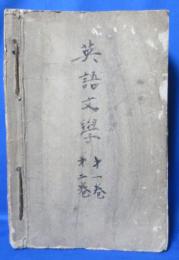 英語文學
才一巻
才二巻